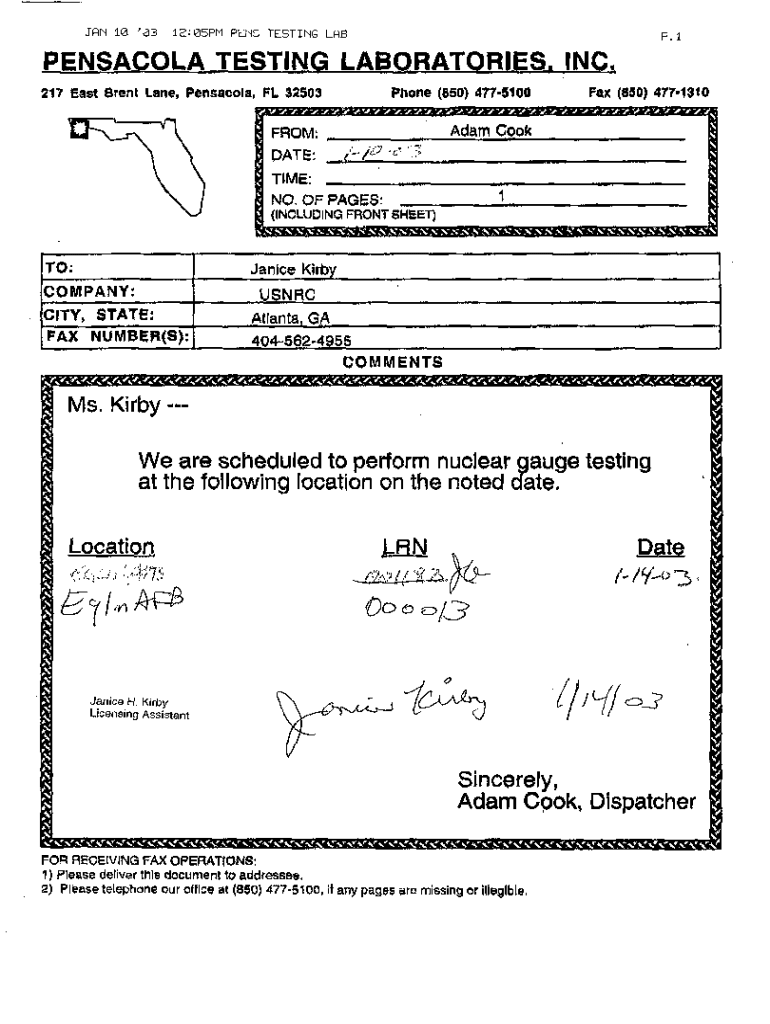 JAN 10 '03 12:05PM PENS TESTING LAB P.1
PENSACOLA TESTING LABORATORIES, INC.
217 East Brent Lane, Pensacola, FL 32503 Phone (850) 477-5100 Fax (850) 477-1310
FROM: Adam Cook
DATE: 1-10-03
TIME:
NO. OF PAGES: 1
(INCLUDING FRONT SHEET)
TO: Janice Kirby
COMPANY: USNRC
CITY, STATE: Atlanta, GA
FAX NUMBER(S): 404-562-4955
COMMENTS
Ms. Kirby ---
We are scheduled to perform nuclear gauge testing
at the following location on the noted date.
Location LRN Date
1-14-03
Egln AFB 000013
Janice H. Kirby
Licensing Assistant
Janice Kirby 1/14/03
Sincerely,
Adam Cook, Dispatcher
FOR RECEIVING FAX OPERATIONS:
1) Please deliver this document to addressee.
2) Please telephone our office at (850) 477-5100, if any pages are missing or illeglble.